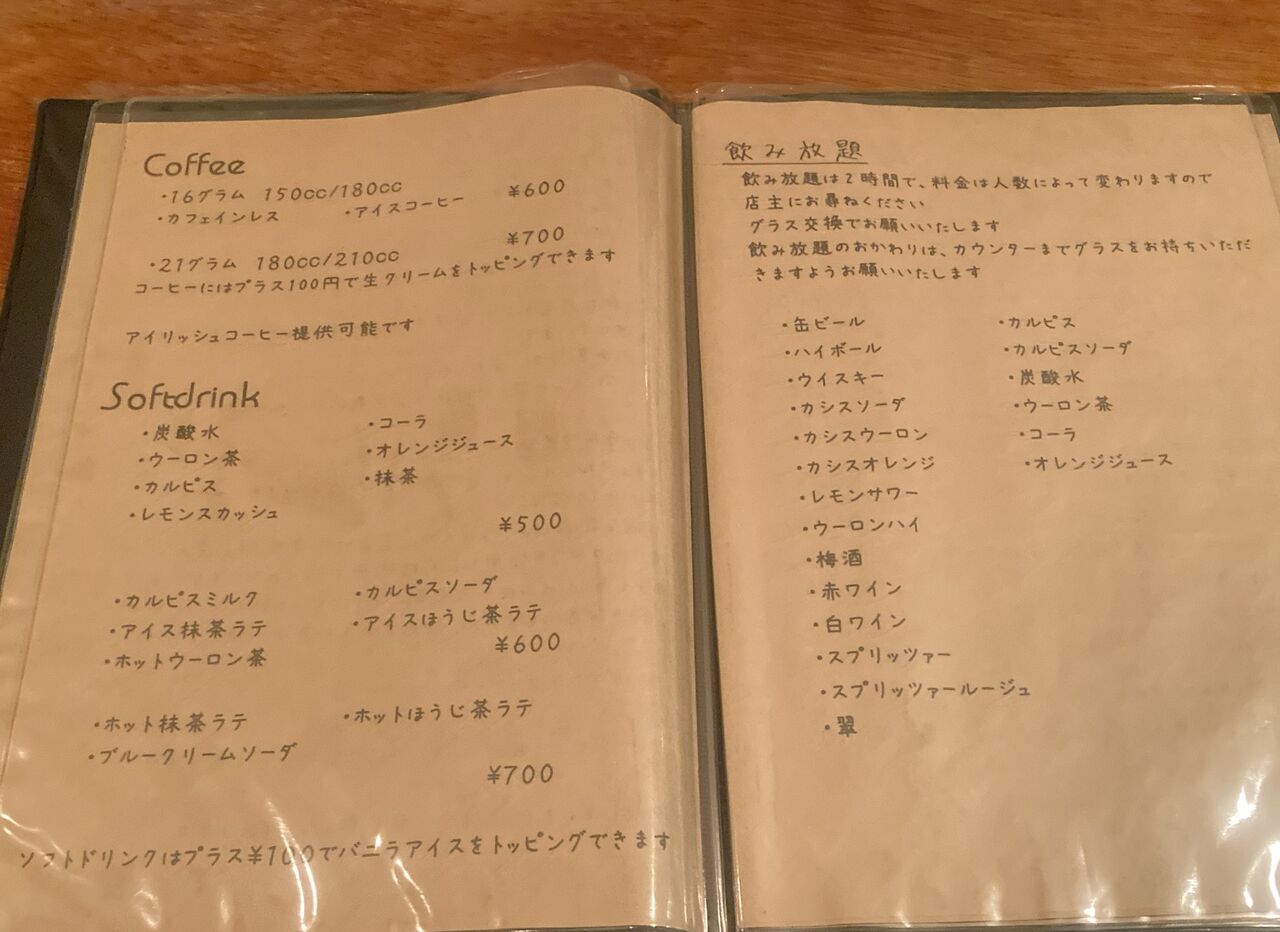 Coffee
・16グラム 150cc/180cc
・カフェインレス ・アイスコーヒー ¥600
¥700
・21グラム 180cc/210cc
コーヒーにはプラス100円で生クリームをトッピングできます
アイリッシュコーヒー提供可能です
Softdrink
・炭酸水 ・コーラ
・ウーロン茶 ・オレンジジュース
・カルピス ・抹茶
・レモンスカッシュ
¥500
・カルピスミルク ・カルピスソーダ
・アイス抹茶ラテ ・アイスほうじ茶ラテ
・ホットウーロン茶 ¥600
・ホット抹茶ラテ ・ホットほうじ茶ラテ
・ブルークリームソーダ
¥700
ソフトドリンクはプラス¥100でバニラアイスをトッピングできます
飲み放題
飲み放題は2時間で、料金は人数によって変わりますので
店主にお尋ねください
グラス交換でお願いいたします
飲み放題のおかわりは、カウンターまでグラスをお持ちいただ
きますようお願いいたします
・缶ビール ・カルピス
・ハイボール ・カルピスソーダ
・ウイスキー ・炭酸水
・カシスソーダ ・ウーロン茶
・カシスウーロン ・コーラ
・カシスオレンジ ・オレンジジュース
・レモンサワー
・ウーロンハイ
・梅酒
・赤ワイン
・白ワイン
・スプリッツァー
・スプリッツァールージュ
・翠